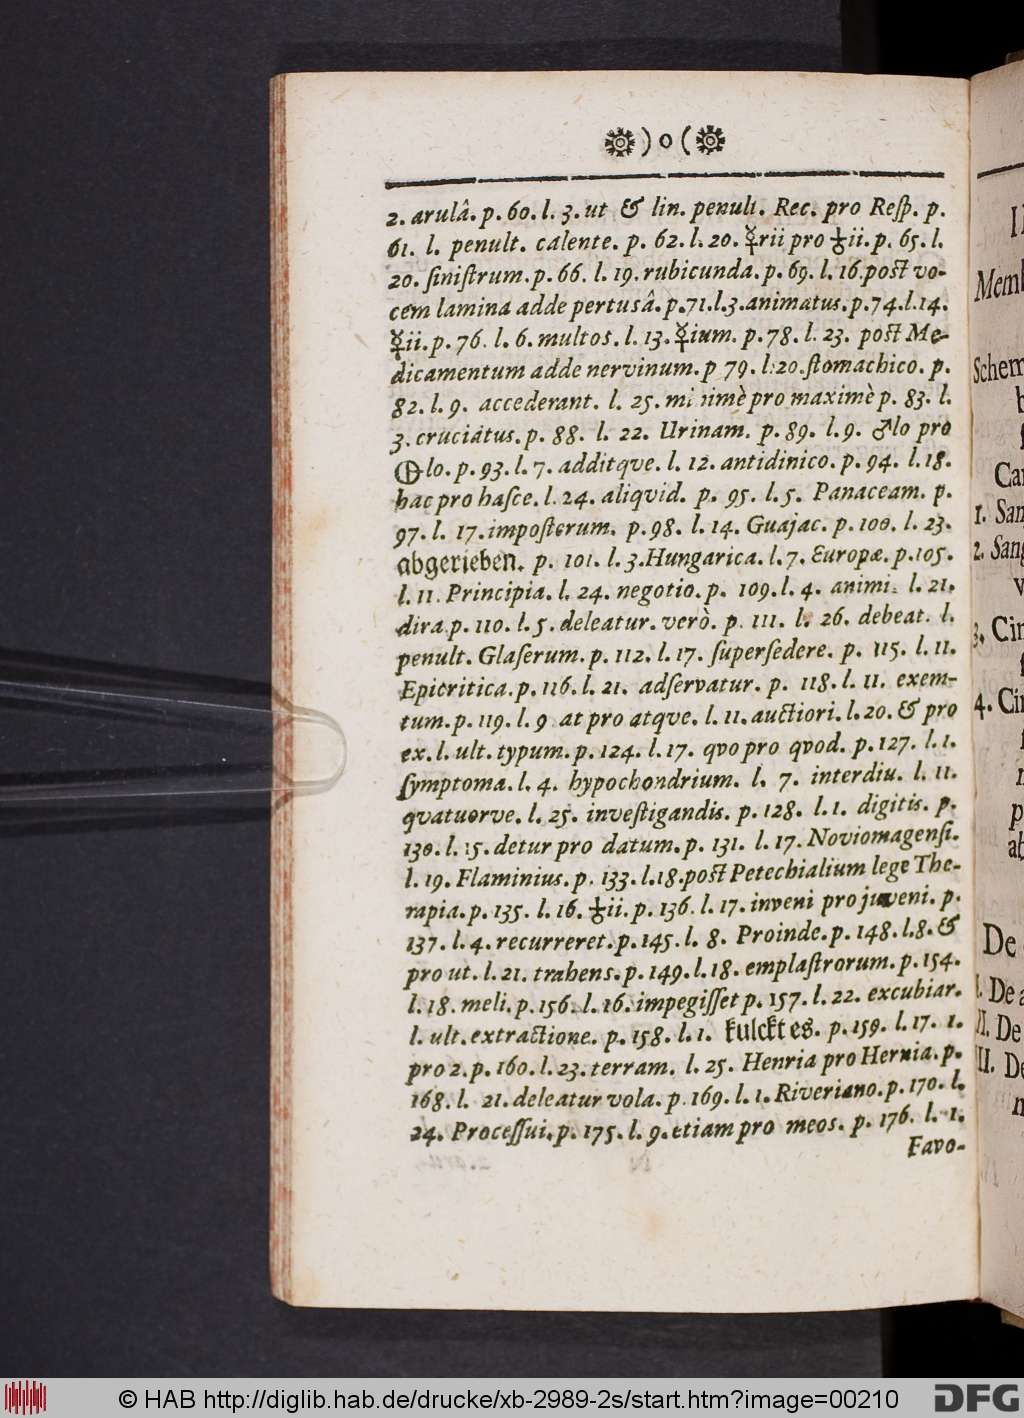 ❁)o(❁
2. arulâ. p. 60. l. 3. ut & lin. penult. Rec. pro Reſp. p.
61. l. penult. calente. p. 62. l. 20. ☿rii pro ♁ii. p. 65. l.
20. ſiniſtrum. p. 66. l. 19. rubicunda. p. 69. l. 16. poſt vo-
cem lamina adde pertusâ. p. 71. l. 3. animatus. p. 74. l. 14.
☿ii. p. 76. l. 6. multos. l. 13. ☿ium. p. 78. l. 23. poſt Me-
dicamentum adde nervinum. p 79. l. 20. ſtomachico. p.
82. l. 9. accederant. l. 25. minimè pro maximè p. 83. l.
3. cruciatus. p. 88. l. 22. Urinam. p. 89. l. 9. ♂lo pro
🜨lo. p. 93. l. 7. additqve. l. 12. antidinico. p. 94. l. 18.
hac pro haſce. l. 24. aliqvid. p. 95. l. 5. Panaceam. p.
97. l. 17. impoſterum. p. 98. l. 14. Guajac. p. 100. l. 23.
abgerieben. p. 101. l. 3. Hungarica. l. 7. Europæ. p. 105.
l. 11. Principia. l. 24. negotio. p. 109. l. 4. animi. l. 21.
dira. p. 110. l. 5. deleatur. verò. p. 111. l. 26. debeat. l.
penult. Glaſerum. p. 112. l. 17. ſuperſedere. p. 115. l. 11.
Epicritica. p. 116. l. 21. adſervatur. p. 118. l. 11. exem-
tum. p. 119. l. 9 at pro atqve. l. 11. auctiori. l. 20. & pro
ex. l. ult. typum. p. 124. l. 17. qvo pro qvod. p. 127. l. 1.
ſymptoma. l. 4. hypochondrium. l. 7. interdiu. l. 11.
qvatuorve. l. 25. inveſtigandis. p. 128. l. 1. digitis. p.
130. l. 15. detur pro datum. p. 131. l. 17. Noviomagenſi.
l. 19. Flaminius. p. 133. l. 18. poſt Petechialium lege The-
rapia. p. 135. l. 16. ♁ii. p. 136. l. 17. inveni pro juveni. p.
137. l. 4. recurreret. p. 145. l. 8. Proinde. p. 148. l. 8. &
pro ut. l. 21. trahens. p. 149. l. 18. emplaſtrorum. p. 154.
l. 18. meli. p. 156. l. 16. impegiſſet p. 157. l. 22. excubiar.
l. ult. extractione. p. 158. l. 1. kulcktes. p. 159. l. 17. 1.
pro 2. p. 160. l. 23. terram. l. 25. Henria pro Hernia. p.
168. l. 21. deleatur vola. p. 169. l. 1. Riveriano. p. 170. l.
24. Proceſſui. p. 175. l. 9. etiam pro meos. p. 176. l. 1.
Favo-
Schem
Car
1. San
2. Sang
3. Cin
4. Cin
De
I. De a
II. De
© HAB http://diglib.hab.de/drucke/xb-2989-2s/start.htm?image=00210
DFG